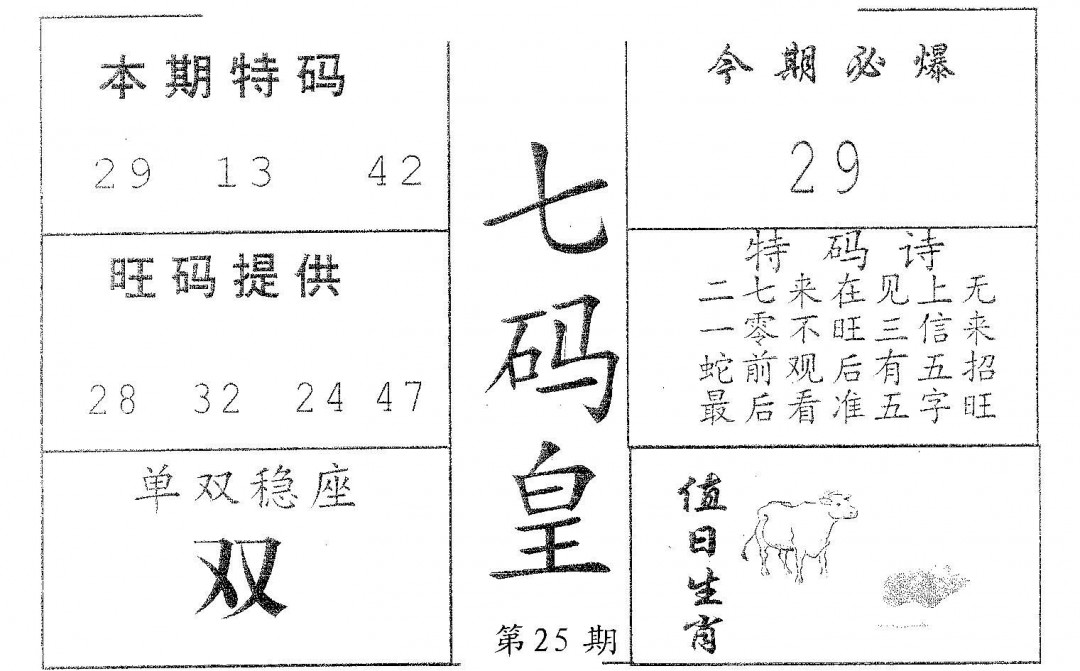 本期特码
29 13 42
旺码提供
28 32 24 47
单双稳座
双
七码皇
第25期
今期必爆
29
特码诗
二七来在见上无
一零不旺三信来
蛇前观后有五招
最后看准五字旺
值日生肖